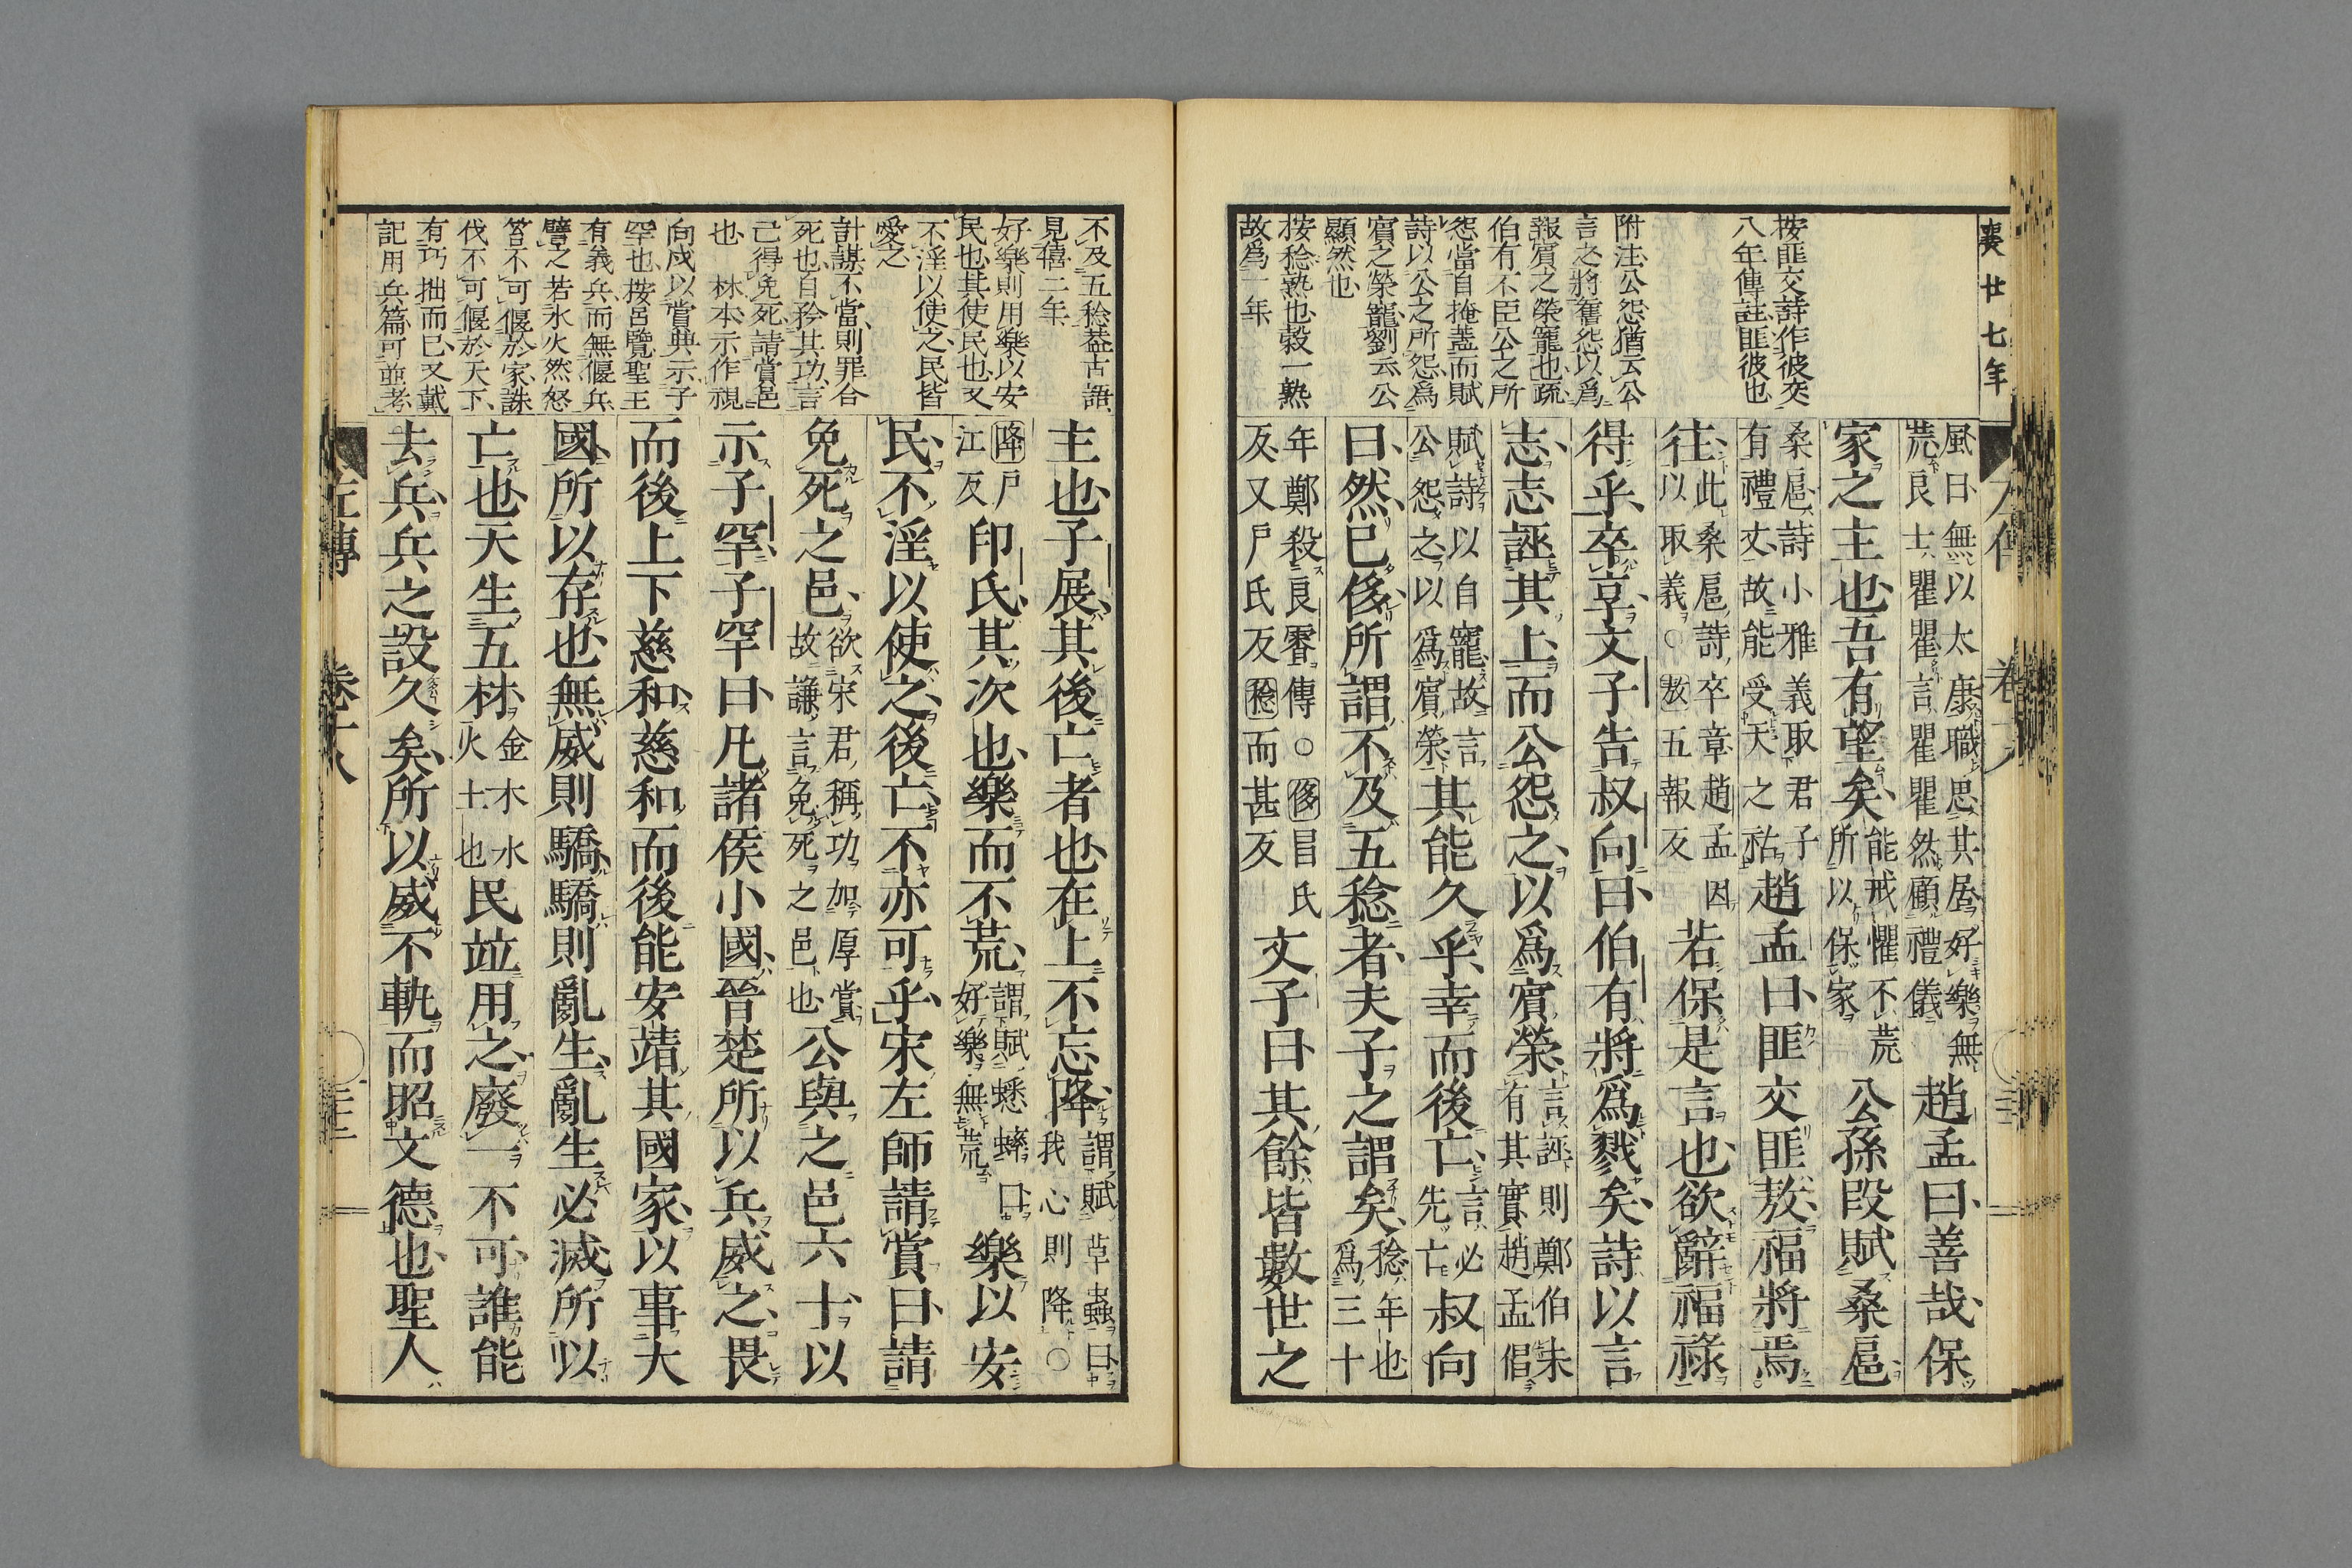 襄廿七年
按匪交詩作彼交
八年傳註匪彼也
附注公怨猶云公
言之將奮怨以爲
報賓之榮寵也疏
伯有不臣公之所
怨當自掩蓋而賦
詩以公之所怨爲
賓之榮寵劉云公
顯然也
按稔熟也穀一熟
故爲一年
風曰無以太康職思其居好樂無荒良士瞿瞿言瞿瞿然顧禮儀趙孟曰善哉保
家之主也吾有望矣能戒懼不荒所以保家公孫段賦桑扈
桑扈詩小雅義取君子有禮文故能受天之祜趙孟曰匪交匪敖福將焉
往此桑扈詩卒章趙孟因以取義○敖五報反若保是言也欲辭福祿
得乎卒享文子告叔向曰伯有將爲戮矣詩以言
志志誣其上而公怨之以爲賓榮言誣則鄭伯未有其實趙孟倡
賦詩以自寵故言公怨之以爲賓榮其能久乎幸而後亡言必先亡叔向
曰然已侈所謂不及五稔者夫子之謂矣稔年也爲三十
年鄭殺良霄傳○侈昌氏反又尸氏反稔而甚反文子曰其餘皆數世之
不及五稔蓋古語
見僖二年
好樂則用樂以安
民也其使民也又
不淫以使之民皆
愛之
計謀不當則罪合
死也自矜其功言
己得免死請賞邑
也 林本示作視
向戌以賞典示子
罕也按呂覽聖王
有義兵而無偃兵
譬之若水火然怒
笞不可偃於家誅
伐不可偃於天下
有巧拙而已又戴
記用兵篇可並考
主也子展其後亡者也在上不忘降謂賦草蟲曰我心則降○
降戶江反印氏其次也樂而不荒謂賦蟋蟀曰好樂無荒樂以安
民不淫以使之後亡不亦可乎宋左師請賞曰請
免死之邑欲宋君稱功加厚賞故謙言免死之邑也公與之邑六十以
示子罕子罕曰凡諸侯小國晉楚所以兵威之畏
而後上下慈和慈和而後能安靖其國家以事大
國所以存也無威則驕驕則亂生亂生必滅所以
亡也天生五材金木水火土也民竝用之廢一不可誰能
去兵兵之設久矣所以威不軌而昭文德也聖人
左傳 卷十八